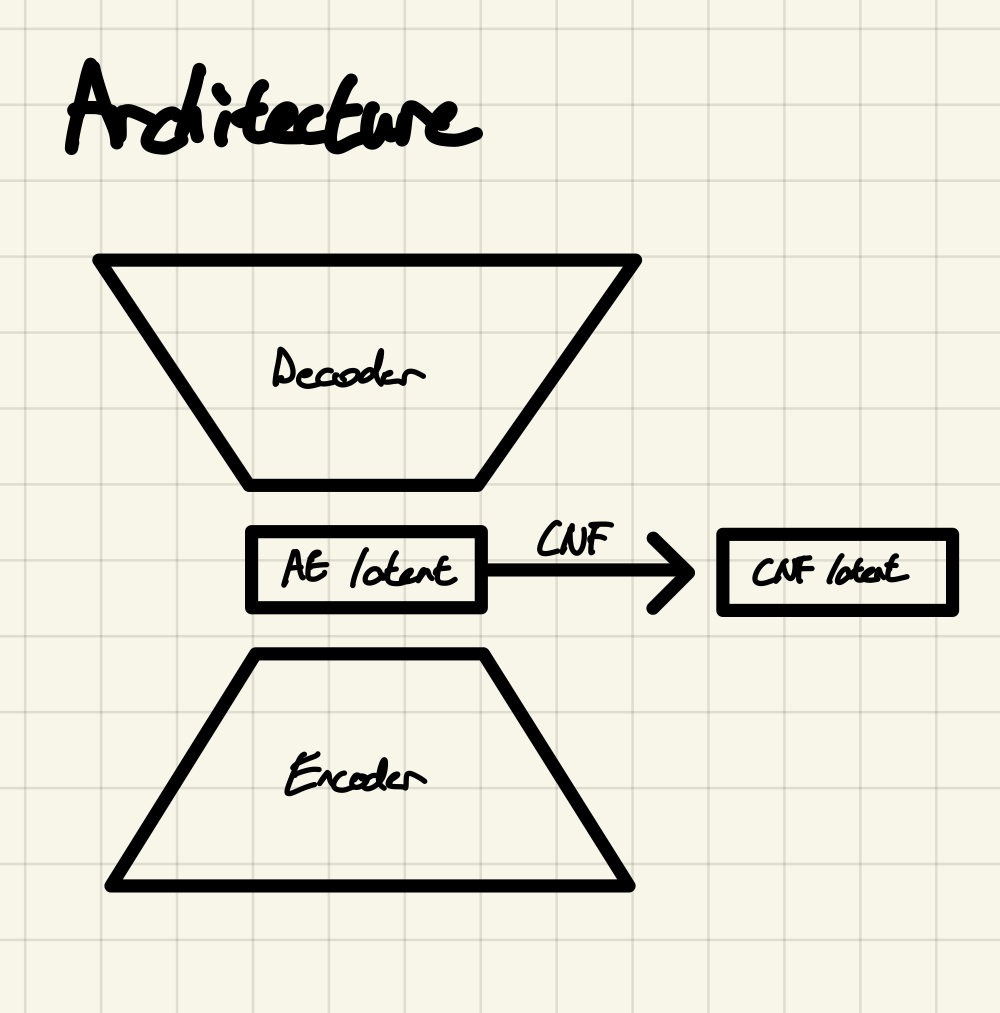 Architecture
Decoder
CNF
AE latent
CNF latent
Encoder